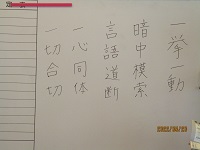 一挙一動
暗中模索
言語道断
一心同体
一切合切
2022/08/23